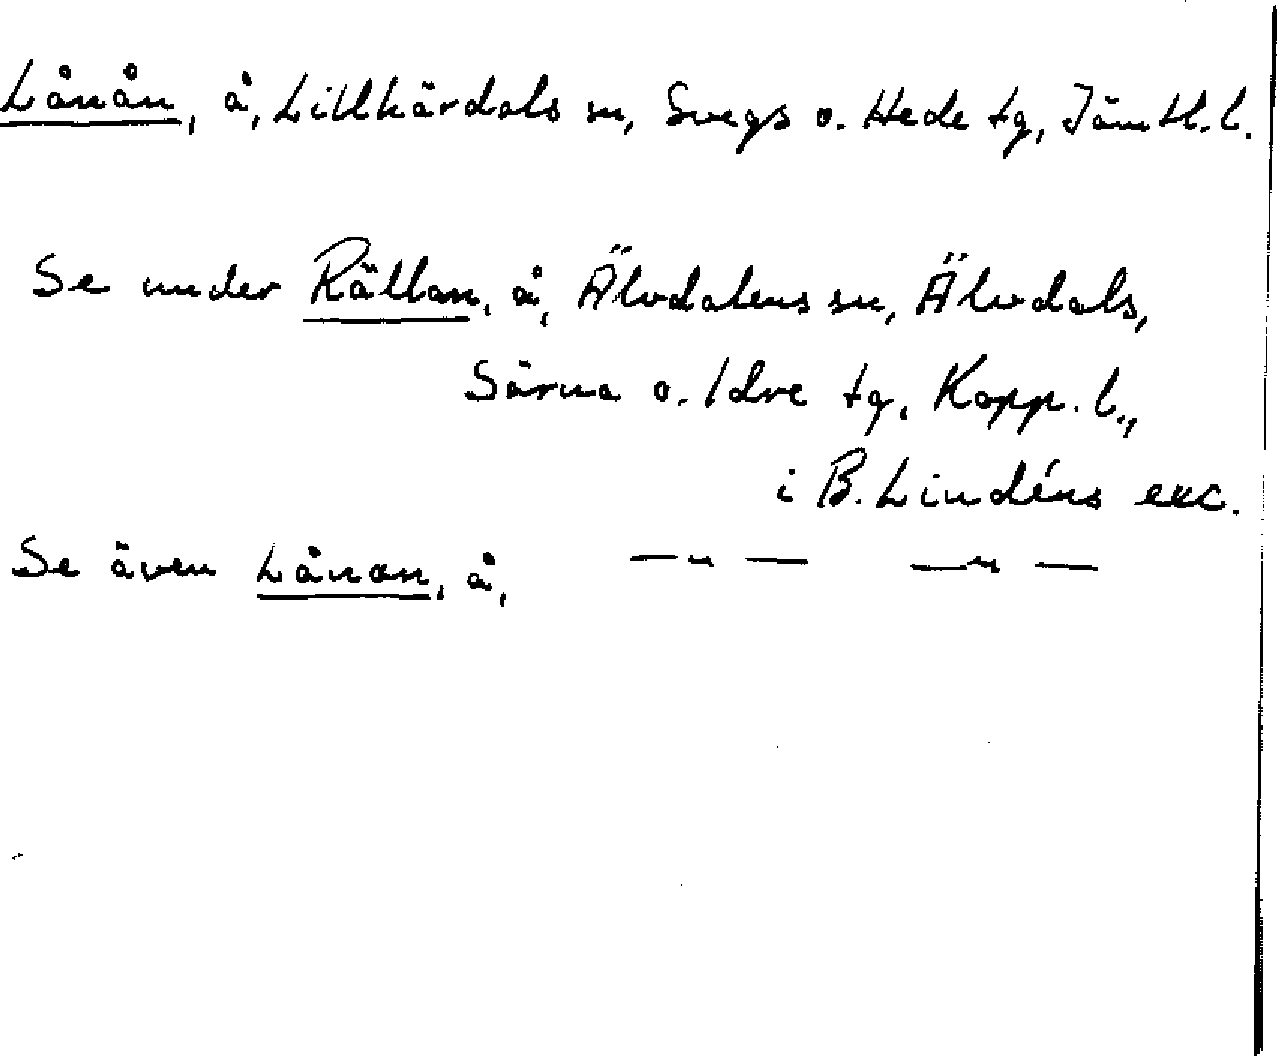 Lånån, å, Lillhärdals sn, Svegs o. Hede tg, Jämtl. l.
Se under Rällan, å, Älvdalens sn, Älvdals,
Särna o. Idre tg, Kopp. l.,
i B. Lindéns exc.
Se även Lånan, å, —"— —"—